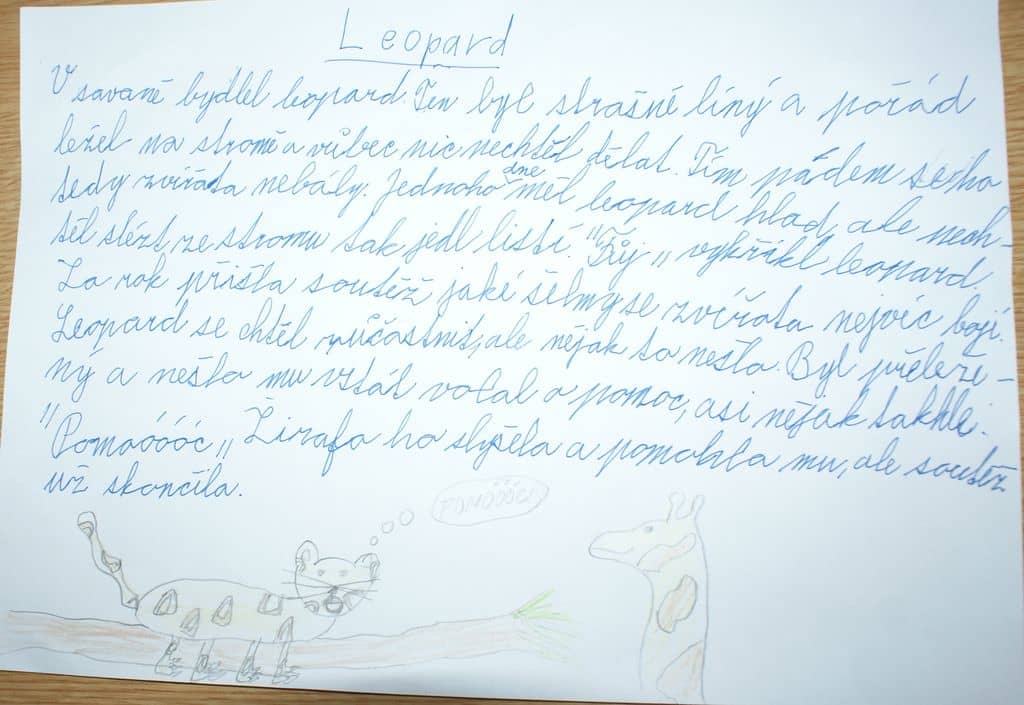 Leopard
V savaně bydlel leopard. Ten byl strašně líný a pořád
ležel na stromě a vůbec nic nechtěl dělat. Tím pádem se ho
tedy zvířata nebály. Jednoho dne měl leopard hlad, ale nech-
těl slézt ze stromu tak jedl listí. "Fůj" vykřikl leopard.
Za rok přišla soutěž jaké šelmy se zvířata nejvíc bojí.
Leopard se chtěl zůčastnit, ale nějak to nešlo. Byl přeleže-
ný a nešlo mu vstát volal o pomoc, asi nějak takhle:
"Pomoóóóc" Žirafa ho slyšela a pomohla mu, ale soutěž
už skončila.
POMÓÓÓC!